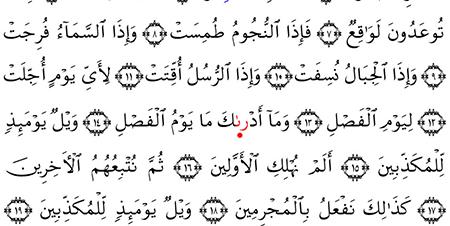 تُوعَدُونَ لَوَٰقِعٞ ﴿٧﴾ فَإِذَا ٱلنُّجُومُ طُمِسَتۡ ﴿٨﴾ وَإِذَا ٱلسَّمَآءُ فُرِجَتۡ
﴿٩﴾ وَإِذَا ٱلۡجِبَالُ نُسِفَتۡ ﴿١٠﴾ وَإِذَا ٱلرُّسُلُ أُقِّتَتۡ ﴿١١﴾ لِأَيِّ يَوۡمٍ أُجِّلَتۡ
﴿١٢﴾ لِيَوۡمِ ٱلۡفَصۡلِ ﴿١٣﴾ وَمَآ أَدۡرَىٰكَ مَا يَوۡمُ ٱلۡفَصۡلِ ﴿١٤﴾ وَيۡلٞ يَوۡمَئِذٖ
لِّلۡمُكَذِّبِينَ ﴿١٥﴾ أَلَمۡ نُهۡلِكِ ٱلۡأَوَّلِينَ ﴿١٦﴾ ثُمَّ نُتۡبِعُهُمُ ٱلۡأٓخِرِينَ
﴿١٧﴾ كَذَٰلِكَ نَفۡعَلُ بِٱلۡمُجۡرِمِينَ ﴿١٨﴾ وَيۡلٞ يَوۡمَئِذٖ لِّلۡمُكَذِّبِينَ ﴿١٩﴾